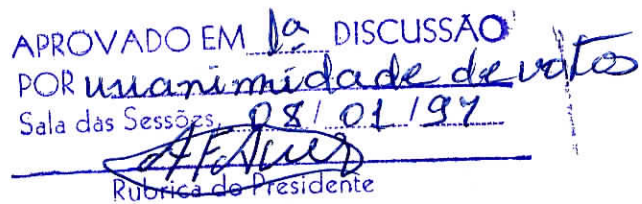 APROVADO EM 1ª DISCUSSÃO
POR unanimidade de votos
Sala das Sessões, 08/01/97
Rubrica do Presidente